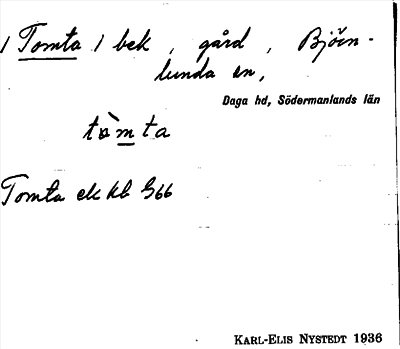 / Tomta / bek, gård, Björn-
lunda sn,
Daga hd, Södermanlands län
tòmta
Tomta ek kb 566
KARL-ELIS NYSTEDT 1936